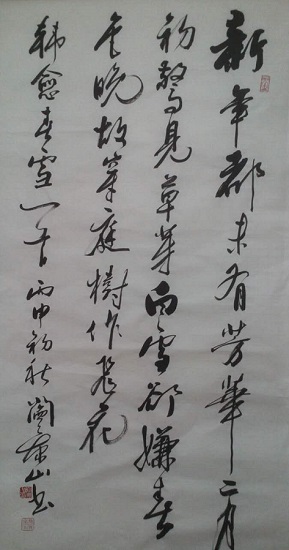 新年都未有芳華二月
初驚見草芽白雪卻嫌春
色晚故穿庭樹作飛花
韩愈春雪一首丙申初秋山书